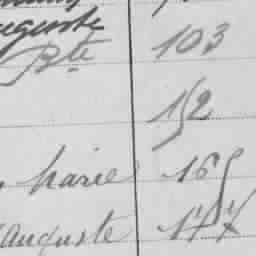 Auguste
Bte 103
152
Marie 165
Auguste 177